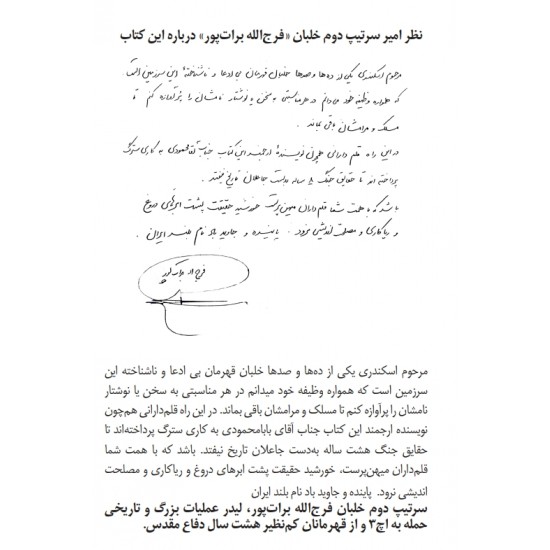 نظر امیر سرتیپ دوم خلبان «فرج‌الله برات‌پور» درباره این کتاب
مرحوم اسکندری یکی از ده‌ها و صدها خلبان قهرمان بی ادعا و ناشناخته این سرزمین است
که همواره وظیفه خود می‌دانم در هر مناسبتی به سخن یا نوشتار نامشان را پرآوازه کنم تا
مسلک و مرامشان باقی بماند.
در این راه قلم دارانی همچون نویسنده ارجمند این کتاب جناب آقای بابامحمودی به کاری سترگ
پرداخته‌اند تا حقایق جنگ ۸ ساله بدست جاعلان تاریخ نیفتد.
باشد که با همت شما قلم‌داران میهن‌پرست خورشید حقیقت پشت ابرهای دروغ
و ریاکاری و مصلحت اندیشی نرود. پاینده و جاوید باد نام بلند ایران.
فرج اله برات پور
مرحوم اسکندری یکی از ده‌ها و صدها خلبان قهرمان بی ادعا و ناشناخته این
سرزمین است که همواره وظیفه خود میدانم در هر مناسبتی به سخن یا نوشتار
نامشان را پرآوازه کنم تا مسلک و مرامشان باقی بماند. در این راه قلم‌دارانی هم‌چون
نویسنده ارجمند این کتاب جناب آقای بابامحمودی به کاری سترگ پرداخته‌اند تا
حقایق جنگ هشت ساله به‌دست جاعلان تاریخ نیفتد. باشد که با همت شما
قلم‌داران میهن‌پرست، خورشید حقیقت پشت ابرهای دروغ و ریاکاری و مصلحت
اندیشی نرود. پاینده و جاوید باد نام بلند ایران
سرتیپ دوم خلبان فرج‌الله برات‌پور، لیدر عملیات بزرگ و تاریخی
حمله به اچ۳ و از قهرمانان کم‌نظیر هشت سال دفاع مقدس.